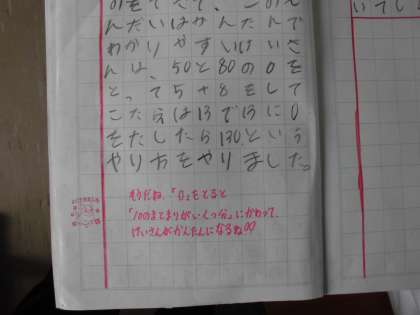 んだいはかんたんで
わかりやすいけいさ
んは、50と80の0を
とって5+8をして
こたえは13で13に0
をたしたら130という
やり方をやりました。
そうだね、「0」をとると
「10のまとまりがいくつ分」にかわって、
けいさんがかんたんになるね